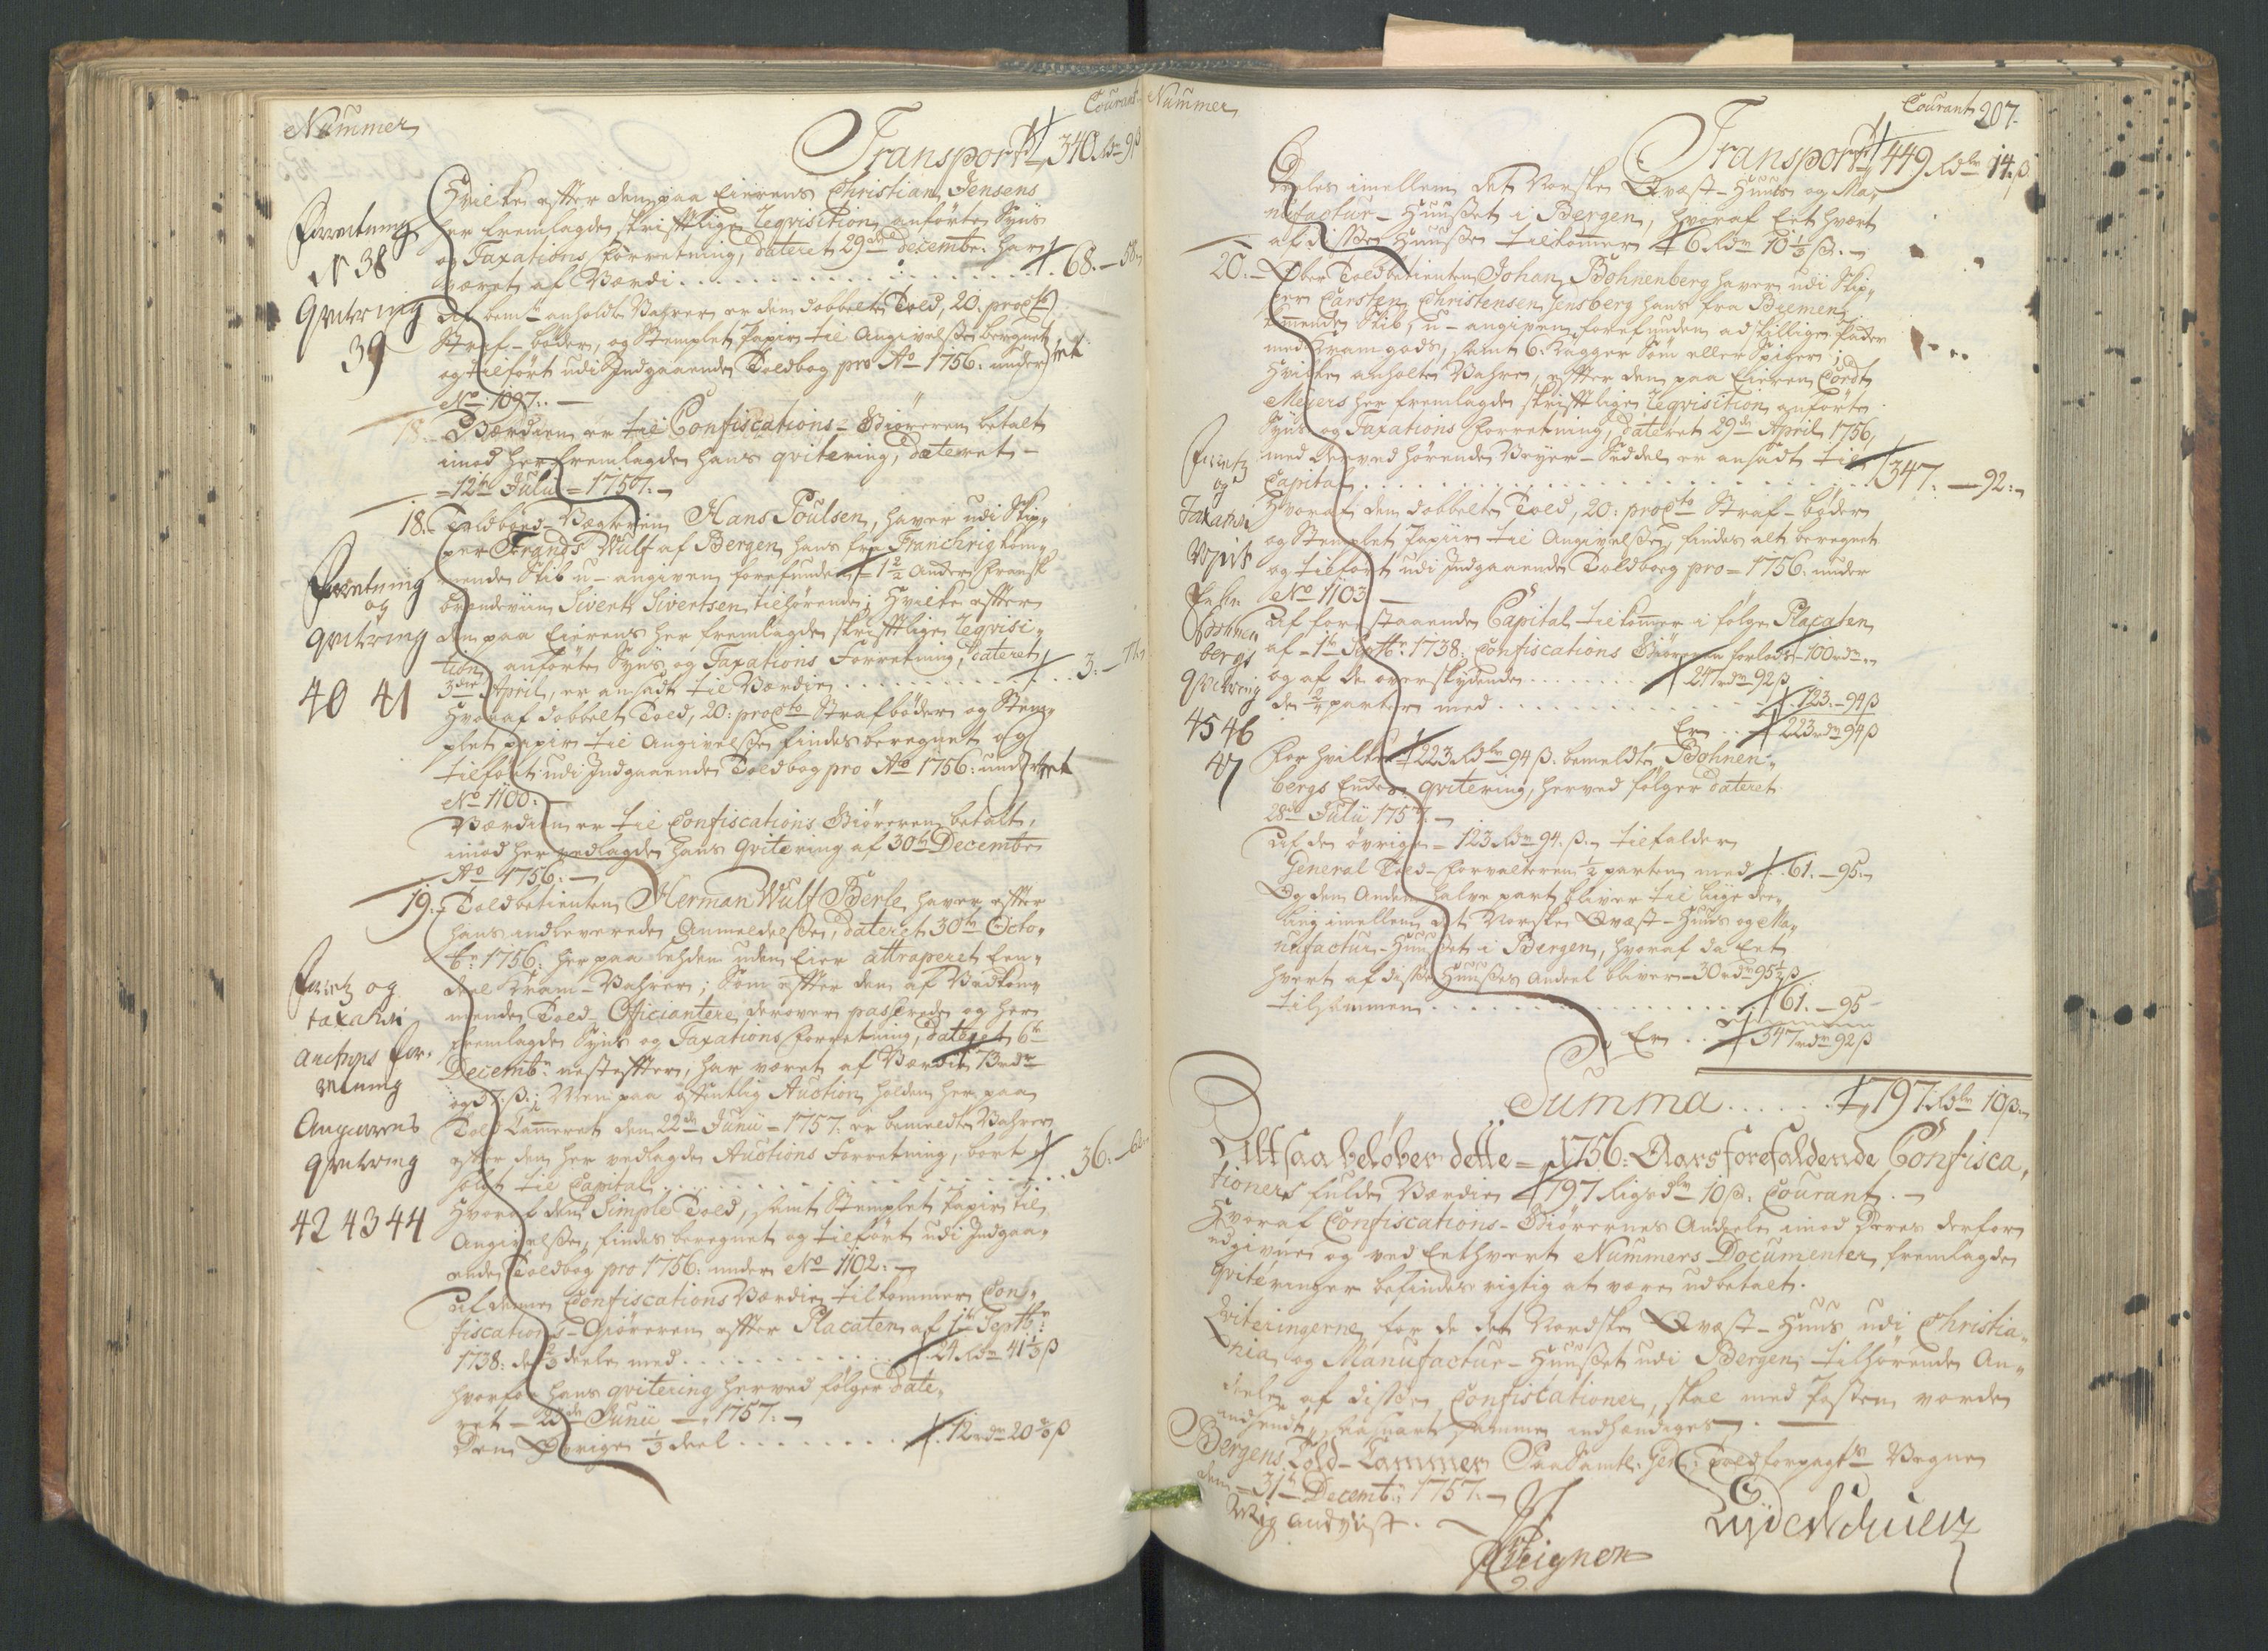 Nummer
Courant
Transport 340 Rdr 9 ß
Hvilke effter den paa Eierens Christian Jensens
her fremlagde skrifftlige Reqvisition anførte Syns
og Taxations Forretning, dateret 29de December har
været af Værdi . . . 68. — 58
Forretning
N 38
Qvitering
39
Af bemte anholdte Vahrer er den dobbelte Told, 20. procto
Straf-bøder, og Stemplet Papir til Angivelsse beregnet
og tilført udi Indgaaende Toldbog pro Ao 1756. under
No 1097. —
Værdien er til Confiscations-Giøreren betalt
imod her fremlagde hans qvitering, dateret –
= 12te Julii = 1757. —
18. Toldboed-Vægteren Hans Poulsen, haver udi Skip-
per Frands Wulf af Bergen, hans fra Franchrig kom-
mende Skib u-angiven forefunden = 1 2/2 Anker Fransk
brændeviin Sivert Sivertsen tilhørende; Hvilke effter
den paa Eierens her fremlagde skrifftlige Reqvisi-
tion anførte Syns og Taxations Forretning, dateret
3die April, er ansadt til Værdie . . . 3. —
Forretning
og
qvitering
40 41
Hvoraf dobbelt Told, 20. procto Strafbøder og Stem-
plet papir til Angivelsse findes beregnet og
tilført udi Indgaaende Toldbog pro Ao 1756. under
No 1100. —
Værdien er til Confiscations Giøreren betalt,
imod her vedlagde hans qvitering af 30te Decembr
Ao 1756. —
19. Toldbetienten Herman Wulf Berle haver effter
hans indleverede Anmeldelsse, dateret 30te Octo-
br 1756. her paa uden Eier attraperet een
deel Kram-Vahrer; Som effter den af Vedkom-
mende Told-Officiantere derover passerede og her
fremlagde Syns og Taxations Forretning, dateret 6te
Decembr nesteffter, har været af Værdie 73 rdr
og 57 ß; Men paa offentlig Auction holden her paa
Told Cammeret den 22de Junii = 1757. er bemeldte Vahrer
effter den her vedlagde Auctions Forretning, bort
solgt til Capital . . . 36. —
Forretn og
taxation
Auctions for-
retning
Angiverens
qvitering
42 43 44
Hvoraf den Simple Told, samt Stemplet Papir til
Angivelsse, findes beregnet og tilført udi Indgaa-
ende Toldbog pro 1756. under No 1102. —
Af denne Confiscations Værdie tilkommer Con-
fiscations-Giøreren effter Placaten af 1te Septbr
1738. de 2/3 deele med . . . 24 Rdr 41 1/3 ß
hvorfor hans qvitering herved følger date-
ret – 23de Junii – 1757. —
Den Øvrige 1/3 deel . . . 12 rdr 20 2/3 ß
Nummer
Courant 207.
Transport 449 Rdr 14 ß
Deeles imellem det Norske Qvæst-Huus og Ma-
nufactur-Huusset i Bergen, hvoraf Eet hvert
af disse Huusse tilkommer 6 Rdr 10 1/3 ß. —
20. Over Toldbetienten Johan Bohnenberg haver udi Skip-
per Carsten Christensen Jensberg hans fra Bremen
kommende Skib, u-angiven forefunden adskillige Pakker
med Kramgods, samt 6. Kagger Søm eller Spiger;
Hvilke anholte Vahre, effter den paa Eieren Cordt
Meyers her fremlagde skrifftlige Reqvisition anførte
Syns og Taxations Forretning, dateret 29de April 1756,
med derved hørende Veyer-Seddel er ansadt til
Capital . . . 347. — 92. —
Forretn
og
Taxation
Veyer
Sedler
Bohnen
bergs
qvitering
45 46
47
Hvoraf den dobbelte Told, 20. procto Straf-bøder
og Stemplet Papiir til Angivelsse, findes alt beregnet
og tilført udi Indgaaende Toldbog pro = 1756. under
No 1103 —
Af forestaaende Capital tilkommer i følge Placaten
af – 1te Septbr 1738. Confiscations Giøreren forlods – 100 rdr. —
og af de overskydende . . . 247 rdr 92 ß
de 2/4 parter med . . . 123. – 94 ß
Er . . 223 rdr 94 ß
For hvilke 223 Rdr 94 ß. bemeldte Bohnen-
bergs Endes qvitering, herved følger dateret
28de Julii 1757. —
Af de øvrige = 123 Rdr 94. ß. — tilfalder
General Told-Forvalteren 1/2 parten med 61. – 95. —
Og den Anden halve part bliver til liige dee-
ling imellem det Norske Qvæst-Huus og Ma-
nufactur-Huusset i Bergen, hvoraf da Eet
hvert af disse Huusses Andeel bliver – 30 rdr 95 1/2 ß
tilsammen . . . 61. – 95 –
Er . . 347 rdr 92 ß
Summa . . . 797 Rdr 10 ß. —
Altsaa beløber dette = 1756. Aars forefaldende Confisca-
tioners fulde Værdie 797 Rigsdr 10 ß. Courant. —
Hvoraf Confiscations-Giørernes Andeele imod Deres derfor
udgivne og ved Eethvert Nummers Documenter fremlagde
qviteringer befindes rigtig at være udbetalt.
Qviteringerne for de det Nordske Qvæst-Huus udi Christia-
nia, og Manufactur-Huusset udi Bergen tilhørende An-
deele af disse Confiscationer, skal med Posten vorde
indsendt, saasnart samme indhændiges. —
Bergens Told-Cammer Paa Samtl: Gen: Toldforpagtr Vegne
den – 31te Decembr 1757. —